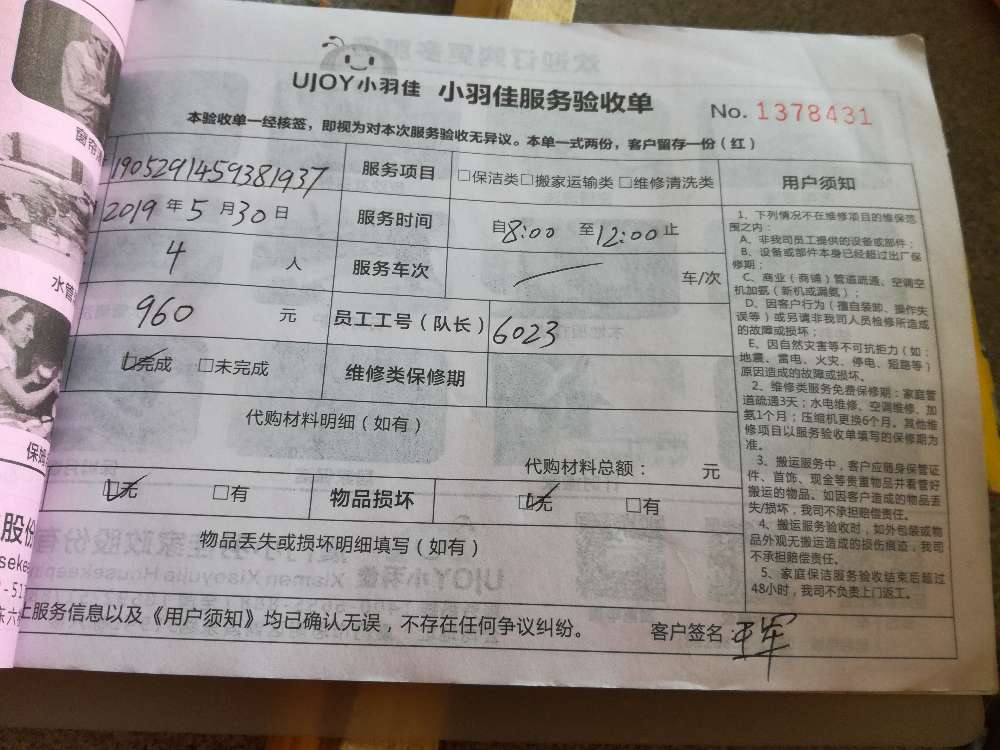 UJOY小羽佳 小羽佳服务验收单 No. 1378431
本验收单一经核签，即视为对本次服务验收无异议。本单一式两份，客户留存一份（红）
1905291459381937 服务项目 □保洁类□搬家运输类□维修清洗类
2019年5月30日 服务时间 自8:00 至12:00止
4 人 服务车次 车/次
960 元 员工工号（队长） 6023
□完成 □未完成 维修类保修期
代购材料明细（如有）
代购材料总额： 元
□无 □有 物品损坏 □无 □有
物品丢失或损坏明细填写（如有）
上服务信息以及《用户须知》均已确认无误，不存在任何争议纠纷。 客户签名：王军
用户须知
1、下列情况不在维修项目的维保范
围之内：
A、非我司员工提供的设备或部件；
B、设备或部件本身已经超过出厂保
修期；
C、商业（商铺）管道疏通、空调空
机加氨（新机或漏氨）；
D、因客户行为（擅自装卸、操作失
误等）或另请非我司人员检修所造成
的故障或损坏；
E、因自然灾害等不可抗拒力（如：
地震、雷电、火灾、停电、短路等）
原因造成的故障或损坏。
2、维修类服务免费保修期：家庭管
道疏通3天；水电维修、空调维修、加
氨1个月；压缩机更换6个月。其他维
修项目以服务验收单填写的保修期为
准。
3、搬运服务中，客户应随身保管证
件、首饰、现金等贵重物品并看管好
搬运的物品。如因客户造成的物品丢
失/损坏，我司不承担赔偿责任。
4、搬运服务验收时，如外包装或物
品外观无搬运造成的损伤痕迹，我司
不承担赔偿责任。
5、家庭保洁服务验收结束后超过
48小时，我司不负责上门返工。
窗帘
水管
保姆
股份